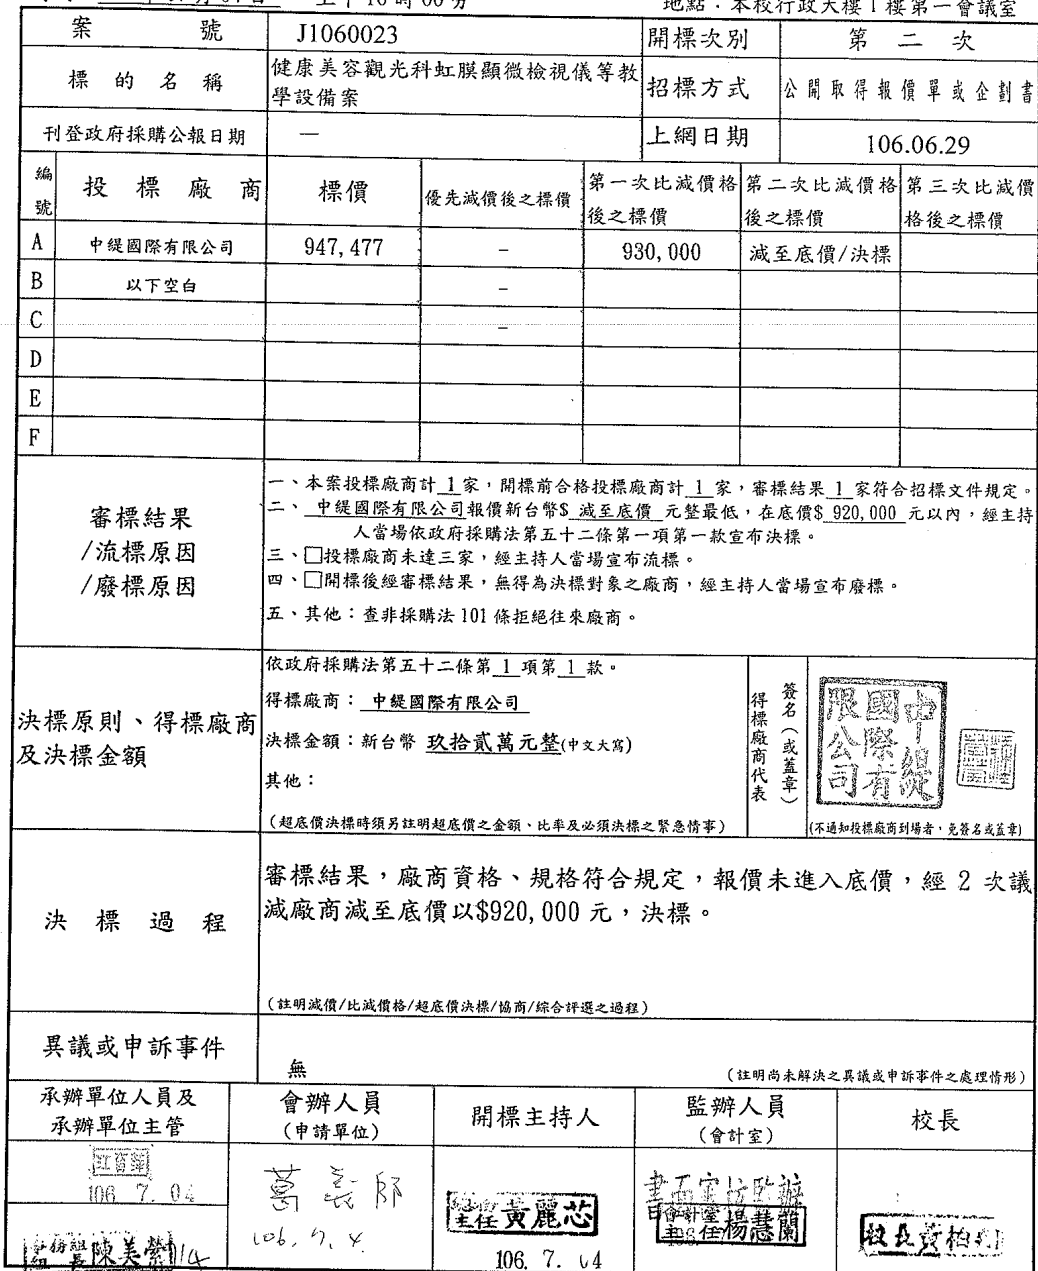 上午10時00分
地點：本校行政大樓1樓第一會議室
案號 J1060023 開標次別 第二次
標的名稱 健康美容觀光科虹膜顯微檢視儀等教
學設備案
招標方式 公開取得報價單或企劃書
刊登政府採購公報日期 — 上網日期 106.06.29
編號 投標廠商 標價 優先減價後之標價 第一次比減價格 第二次比減價格 第三次比減價
後之標價 後之標價 格後之標價
A 中緹國際有限公司 947,477 – 930,000 減至底價/決標
B 以下空白 –
C –
D
E
F
審標結果
/流標原因
/廢標原因
一、本案投標廠商計 1 家，開標前合格投標廠商計 1 家，審標結果 1 家符合招標文件規定。
二、 中緹國際有限公司報價新台幣$ 減至底價 元整最低，在底價$ 920,000 元以內，經主持
人當場依政府採購法第五十二條第一項第一款宣布決標。
三、□投標廠商未達三家，經主持人當場宣布流標。
四、□開標後經審標結果，無得為決標對象之廠商，經主持人當場宣布廢標。
五、其他：查非採購法101條拒絕往來廠商。
決標原則、得標廠商
及決標金額
依政府採購法第五十二條第 1 項第 1 款。
得標廠商： 中緹國際有限公司
決標金額：新台幣 玖拾貳萬元整(中文大寫)
其他：
(超底價決標時須另註明超底價之金額、比率及必須決標之緊急情事)
得標廠商代表
簽名（或蓋章）
中緹
國際有
限公司
(不通知投標廠商到場者，免簽名或蓋章)
決標過程
審標結果，廠商資格、規格符合規定，報價未進入底價，經 2 次議
減廠商減至底價以$920,000 元，決標。
(註明減價/比減價格/超底價決標/協商/綜合評選之過程)
異議或申訴事件
無
(註明尚未解決之異議或申訴事件之處理情形)
承辦單位人員及
承辦單位主管
會辦人員
(申請單位)
開標主持人
監辦人員
(會計室)
校長
106. 7. 04
陳美縈
106. 7. 4.
主任黃麗芯
106. 7. 04
書面審核監辦
會計室
主任楊慧蘭
校長黃柏